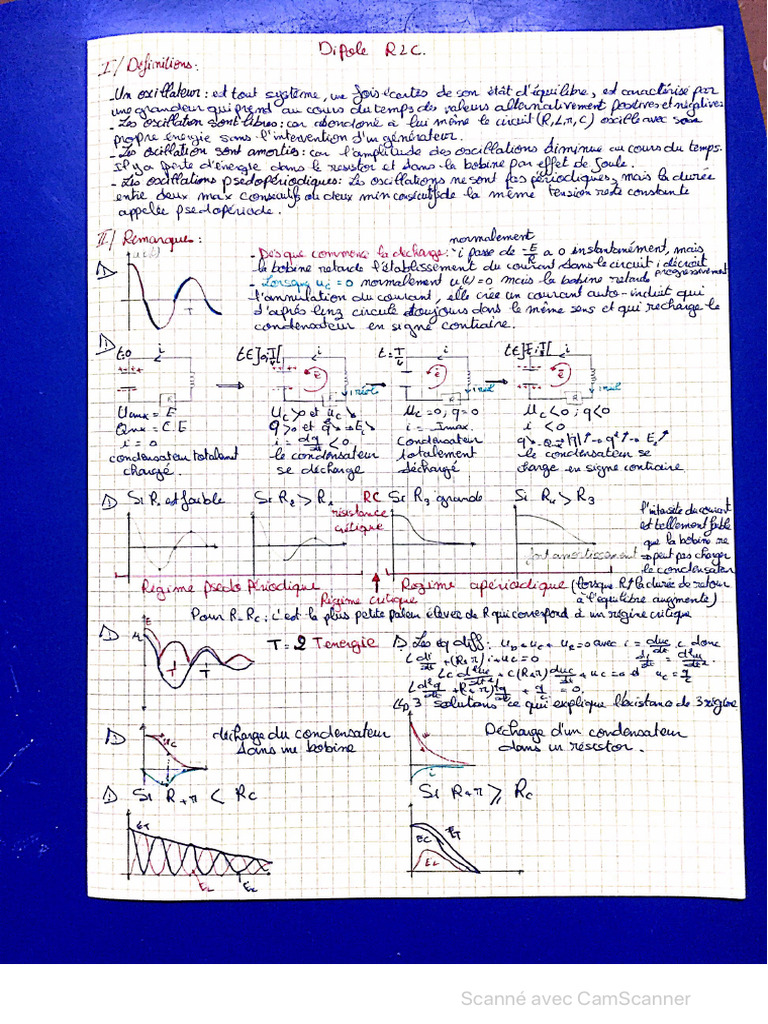 Dipole RLC.
I/ Définitions:
- Un oscillateur: est tout système, une fois écartés de son état d'équilibre, est caractérisé par
une grandeur qui prend au cours du temps des valeurs alternativement positives et négatives
- Les oscillation sont libres: car abondoné à lui même le circuit (R,L,r,C) oscille avec sa
propre énergie sans l'intervention d'un générateur.
- Les oscillation sont amorties: car l'amplitude des oscillations diminue au cours du temps.
Il y a perte d'énergie dans le resistor et dans la bobine par effet de Joule.
- Les oscillations psedopériodiques: Les oscillations ne sont pas périodiques, mais la durée
entre deux max consécutifs ou deux min consécutifs de la même tension reste constante
appelée psedopériode.
II/ Remarques:
normalement
- Dès que commence la décharge: i passe de -E/R a 0 instantanément, mais
la bobine retarde l'établissement du courant dans le circuit i décroit
progressivement
- Lorsque uc = 0 normalement u(t)=0 mais la bobine retarde
l'annulation du courant, elle crée un courant auto-induit qui
d'après lenz circule toujours dans le même sens et qui recharge le
condensateur en signe contraire.
t=0 i
t∈]0,T/4[ i
t=T/4 i
t∈]T/4;T/2[ i
R
Umax = E
Qmax = C.E
i = 0
condensateur totalement
chargé.
Uc>0 et uc ↘
q>0 et q ↘
i = dq/dt < 0
le condensateur
se décharge
Uc=0; q=0
i = Imax.
Condensateur
totalement
déchargé
Uc<0; q<0
i < 0
le condensateur se
charge en signe contraire.
Si R1 est faible
Si R2 > R1
RC
résistance
critique
Si R3 grande
Si R4 > R3
fort amortissement
l'intensité du courant
est tellement faible
que la bobine ne
peut pas charger
le condensateur
Régime pseudo Périodique
Régime critique
Régime apériodique (lorsque R↑ la durée de retour
à l'équilibre augmente)
Pour R=Rc; c'est la plus petite valeur élevée de R qui correspond à un régime critique
T = 2 Tenergie
Les eq diff: ub + uc + uR = 0 avec i = duc/dt . C donc
L di/dt + (R+r) i + uc = 0
di/dt = d²uc/dt².
Lc d²uc/dt² + C(R+r) duc/dt + uc = 0 et uc = q/c
L d²q/dt² + (R+r) dq/dt + q/c = 0.
3 solutions ce qui explique l'existance de 3 régime
décharge du condensateur
dans une bobine
Décharge d'un condensateur
dans un résistor.
Si R+r < Rc
Si R+r ≥ Rc
ET
EL
Ec
EC
ET
EL
Scanné avec CamScanner